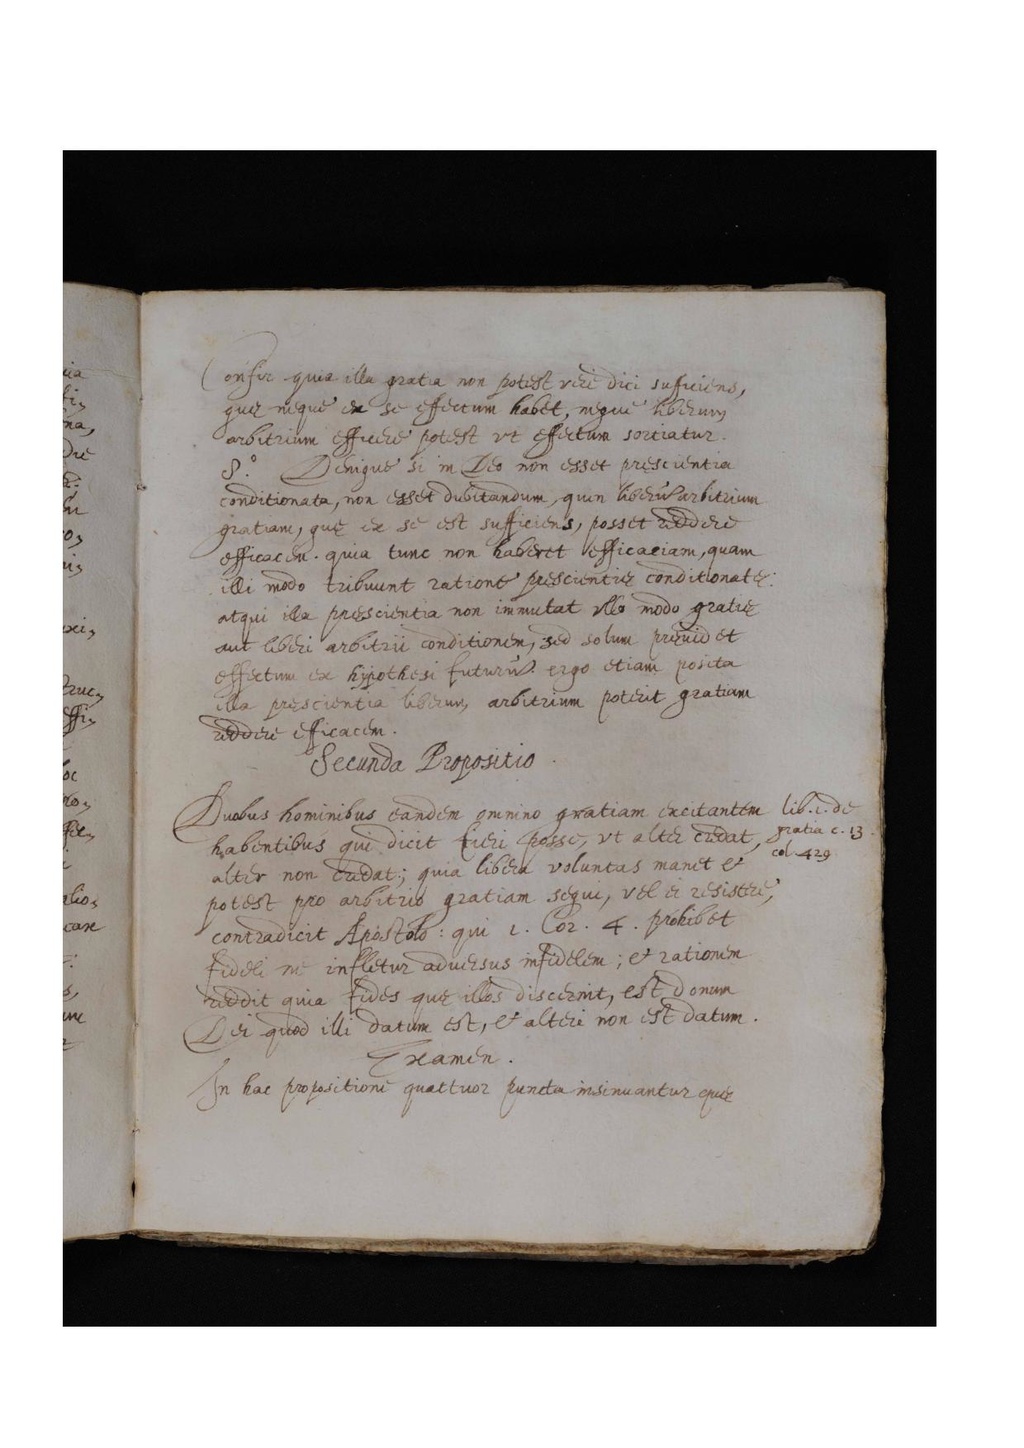 Confir. quia illa gratia non potest vere dici sufficiens,
quę neque ex se effectum habet, neque liberum
arbitrium efficere potest vt effectum sortiatur.
8.° Denique si in Deo non esset prescientia
conditionata, non esset dubitandum, quin liberū arbitrium
gratiam, quę ex se est sufficiens, posset reddere
efficacem. quia tunc non haberet efficaciam, quam
illi modo tribuunt ratione prescientię conditionatę:
atqui illa prescientia non immutat vllo modo gratię
aut liberi arbitrii conditionem, sed solum pręuidet
effectum ex hypothesi futurū. ergo etiam posita
illa pręscientia liberum arbitrium poterit gratiam
reddere efficacem.
Secunda Propositio.
Duobus hominibus eandem omnino gratiam excitantem
habentibus qui dicit fieri posse, vt alter credat,
alter non credat; quia libera voluntas manet &
potest pro arbitrio gratiam sequi, vel ei resistere,
contradicit Apostolo: qui 1. Cor. 4. prohibet
fideli ne infletur aduersus infidelem; et rationem
reddit quia fides quę illos discernit, est donum
Dei quod illi datum est, & alteri non est datum.
lib. 1. de
gratia c. 13.
col. 429
Examen.
In hac propositione quattuor puncta insinuantur quę